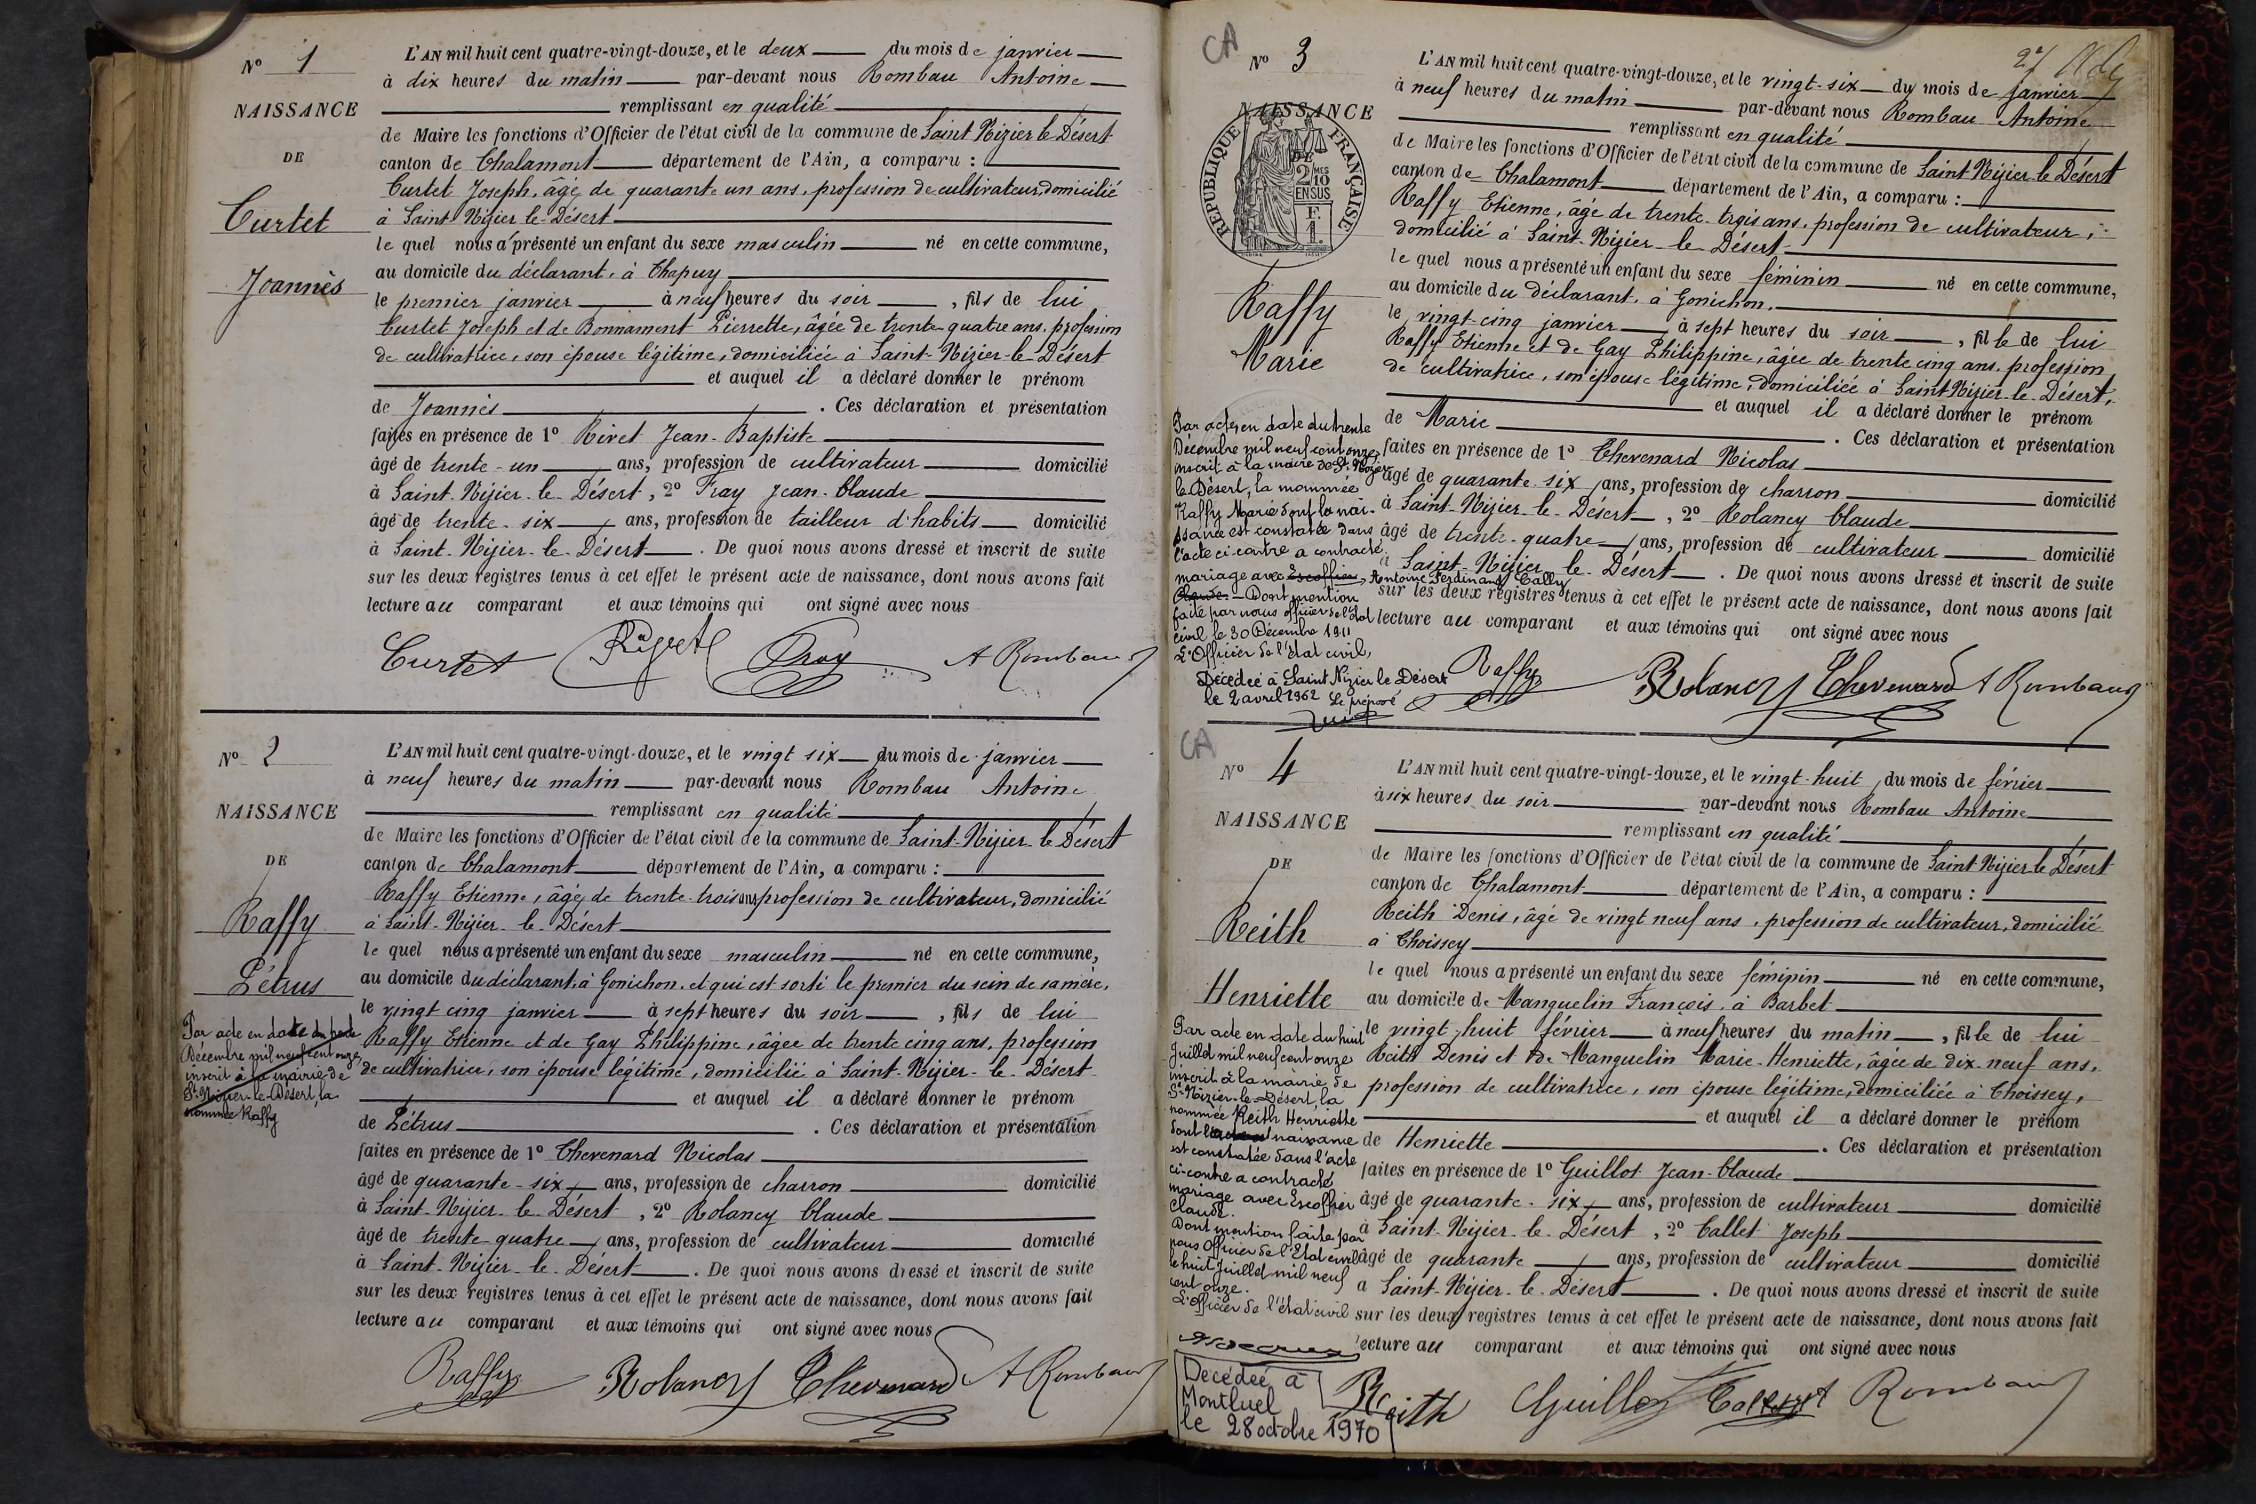 N° 1
NAISSANCE
DE
Curtet
Joannès
L'AN mil huit cent quatre-vingt-douze, et le deux du mois de janvier
à dix heures du matin par-devant nous Rombau Antoine
remplissant en qualité
de Maire les fonctions d'Officier de l'état civil de la commune de Saint Nizier le Désert
canton de Chalamont département de l'Ain, a comparu :
Curtet Joseph, âgé de quarante un ans, profession de cultivateur, domicilié
à Saint Nizier le Désert
le quel nous a présenté un enfant du sexe masculin né en cette commune,
au domicile du déclarant, à Chapuy
le premier janvier à neuf heures du soir, fils de lui
Curtet Joseph et de Bonnament Pierrette, âgée de trente quatre ans, profession
de cultivatrice, son épouse légitime, domiciliée à Saint-Nizier-le-Désert
et auquel il a déclaré donner le prénom
de Joannès. Ces déclaration et présentation
faites en présence de 1° Rivet Jean-Baptiste
âgé de trente-un ans, profession de cultivateur domicilié
à Saint-Nizier-le-Désert, 2° Fray Jean-Claude
âgé de trente-six ans, profession de tailleur d'habits domicilié
à Saint-Nizier-le-Désert. De quoi nous avons dressé et inscrit de suite
sur les deux registres tenus à cet effet le présent acte de naissance, dont nous avons fait
lecture au comparant et aux témoins qui ont signé avec nous
Curtet Rivet Fray A Rombau
N° 2
NAISSANCE
DE
Raffy
Pétrus
Par acte en date du trente
Décembre mil neuf cent onze,
inscrit à la mairie de
St-Nizier-le-Désert, la
nommée Raffy
L'AN mil huit cent quatre-vingt-douze, et le vingt six du mois de janvier
à neuf heures du matin par-devant nous Rombau Antoine
remplissant en qualité
de Maire les fonctions d'Officier de l'état civil de la commune de Saint-Nizier-le Désert
canton de Chalamont département de l'Ain, a comparu :
Raffy Etienne, âgé de trente-trois ans, profession de cultivateur, domicilié
à Saint-Nizier-le-Désert
le quel nous a présenté un enfant du sexe masculin né en cette commune,
au domicile du déclarant, à Gonichon, et qui est sorti le premier du sein de sa mère,
le vingt cinq janvier à sept heures du soir, fils de lui
Raffy Etienne et de Gay Philippine, âgée de trente cinq ans, profession
de cultivatrice, son épouse légitime, domicilié à Saint-Nizier-le-Désert
et auquel il a déclaré donner le prénom
de Pétrus. Ces déclaration et présentation
faites en présence de 1° Chevenard Nicolas
âgé de quarante-six ans, profession de charron domicilié
à Saint-Nizier-le-Désert, 2° Rolancy Claude
âgé de trente quatre ans, profession de cultivateur domicilié
à Saint-Nizier-le-Désert. De quoi nous avons dressé et inscrit de suite
sur les deux registres tenus à cet effet le présent acte de naissance, dont nous avons fait
lecture au comparant et aux témoins qui ont signé avec nous
Raffy Rolancy Chevenard A Rombau
CA
N° 3
NAISSANCE
DE
RÉPUBLIQUE FRANÇAISE
2 MES
10
EN SUS
F.
1.
Raffy
Marie
Par acte en date du trente
Décembre mil neuf cent onze,
inscrit à la mairie de St-Nizier
le Désert, la nommée
Raffy Marie dont la nais-
sance est constatée dans
l'acte ci-contre a contracté
mariage avec Escoffier, Antoine Ferdinand Cally
Claude. Dont mention
faite par nous officier de l'état
civil le 30 Décembre 1911
L'Officier de l'état civil,
Décédée à Saint Nizier le Désert
le 2 avril 1962 Le préposé
L'AN mil huit cent quatre-vingt-douze, et le vingt-six du mois de janvier
à neuf heures du matin par-devant nous Rombau Antoine
remplissant en qualité
de Maire les fonctions d'Officier de l'état civil de la commune de Saint Nizier-le Désert
canton de Chalamont département de l'Ain, a comparu :
Raffy Etienne, âgé de trente-trois ans, profession de cultivateur,
domicilié à Saint-Nizier-le Désert
le quel nous a présenté un enfant du sexe féminin né en cette commune,
au domicile du déclarant, à Gonichon,
le vingt-cinq janvier à sept heures du soir, fille de lui
Raffy Etienne et de Gay Philippine, âgée de trente cinq ans, profession
de cultivatrice, son épouse légitime, domiciliée à Saint Nizier-le-Désert,
et auquel il a déclaré donner le prénom
de Marie. Ces déclaration et présentation
faites en présence de 1° Chevenard Nicolas
âgé de quarante six ans, profession de charron domicilié
à Saint-Nizier-le-Désert, 2° Rolancy Claude
âgé de trente-quatre ans, profession de cultivateur domicilié
à Saint-Nizier-le-Désert. De quoi nous avons dressé et inscrit de suite
sur les deux registres tenus à cet effet le présent acte de naissance, dont nous avons fait
lecture au comparant et aux témoins qui ont signé avec nous
Raffy Rolancy Chevenard A Rombau
CA
N° 4
NAISSANCE
DE
Reith
Henriette
Par acte en date du huit
Juillet mil neuf cent onze
inscrit à la mairie de
St-Nizier-le-Désert la
nommée Reith Henriette
dont la naissance
est constatée dans l'acte
ci-contre a contracté
mariage avec Escoffier
Claude.
Dont mention faite par
nous Officier de l'Etat civil
le huit Juillet mil neuf
cent onze.
L'Officier de l'état civil
Décédée à
Montluel
le 28 octobre 1970
L'AN mil huit cent quatre-vingt-douze, et le vingt-huit du mois de février
à six heures du soir par-devant nous Rombau Antoine
remplissant en qualité
de Maire les fonctions d'Officier de l'état civil de la commune de Saint Nizier-le Désert
canton de Chalamont département de l'Ain, a comparu :
Reith Denis, âgé de vingt neuf ans, profession de cultivateur, domicilié
à Choissey
le quel nous a présenté un enfant du sexe féminin né en cette commune,
au domicile de Manguelin François, à Barbet
le vingt-huit février à neuf heures du matin, fille de lui
Reith Denis et de Manguelin Marie-Henriette, âgée de dix-neuf ans,
profession de cultivatrice, son épouse légitime, domiciliée à Choissey,
et auquel il a déclaré donner le prénom
de Henriette. Ces déclaration et présentation
faites en présence de 1° Guillot Jean-Claude
âgé de quarante-six ans, profession de cultivateur domicilié
à Saint-Nizier-le-Désert, 2° Callet Joseph
âgé de quarante ans, profession de cultivateur domicilié
à Saint-Nizier-le-Désert. De quoi nous avons dressé et inscrit de suite
sur les deux registres tenus à cet effet le présent acte de naissance, dont nous avons fait
lecture au comparant et aux témoins qui ont signé avec nous
Reith Guillot Callet A Rombau